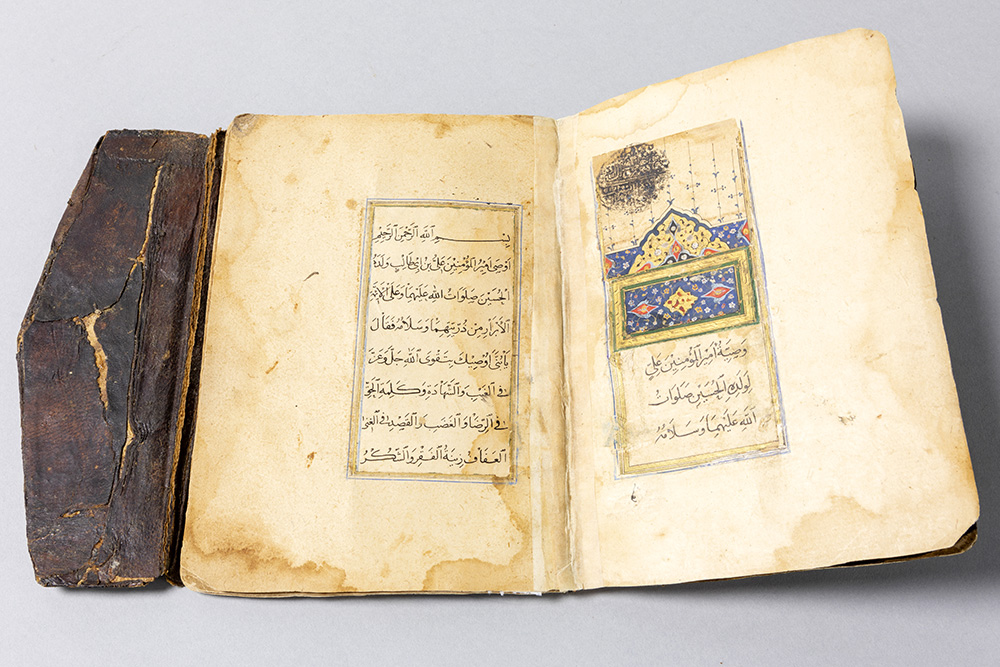 وصية أمير المؤمنين علي
لولده الحسين صلوات
الله عليهما وسلامه
بسم الله الرحمن الرحيم
أوصى أمير المؤمنين علي بن أبي طالب ولده
الحسين صلوات الله عليهما وعلى الأئمة
الأبرار من ذريتهما وسلامه فقال
يا بني أوصيك بتقوى الله جل وعز
في الغيب والشهادة وكلمة الحق
في الرضا والغضب والقصد في الغنى
العفاف زينة الفقر والشكر